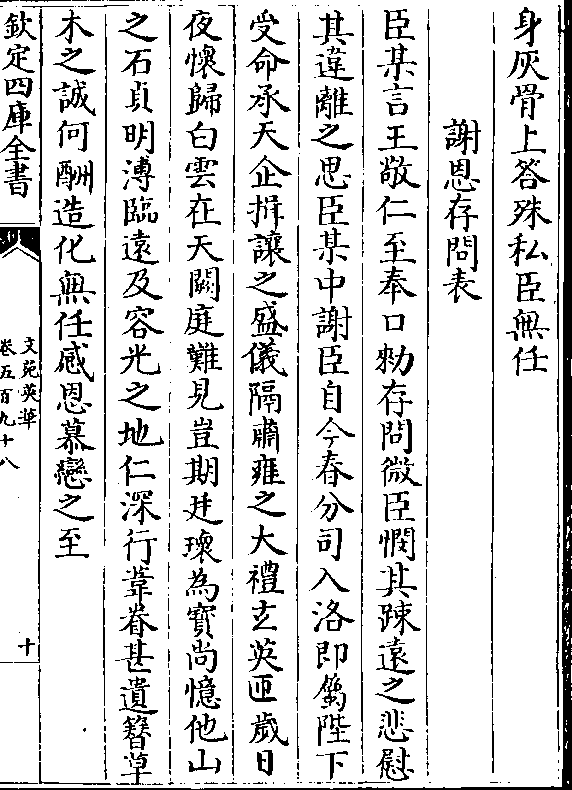 身灰骨上答殊私臣無任
謝恩存問表
臣某言王敬仁至奉口勑存問微臣憫其踈遠之悲慰
其違離之思臣某中謝臣自今春分司入洛即屬陛下
受命承天企揖讓之盛儀隔肅雍之大禮玄英匝歲日
夜懷歸白雲在天闕庭難見豈期珽瓌為寶尚憶他山
之石貞明溥臨遠及容光之地仁深行葦眷甚遺簪草
木之誠何酬造化無任感恩慕戀之至
欽定四庫全書
文苑英華
卷五百九十八
十